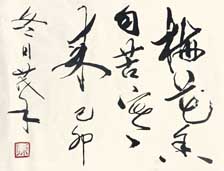 梅花香
自苦寒
来己卯
冬日